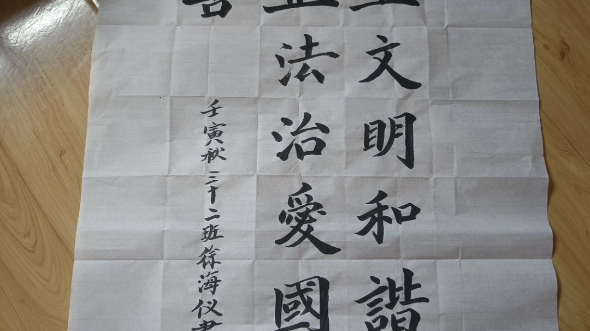 文明和諧
法治愛國
壬寅秋三十二班徐海仪